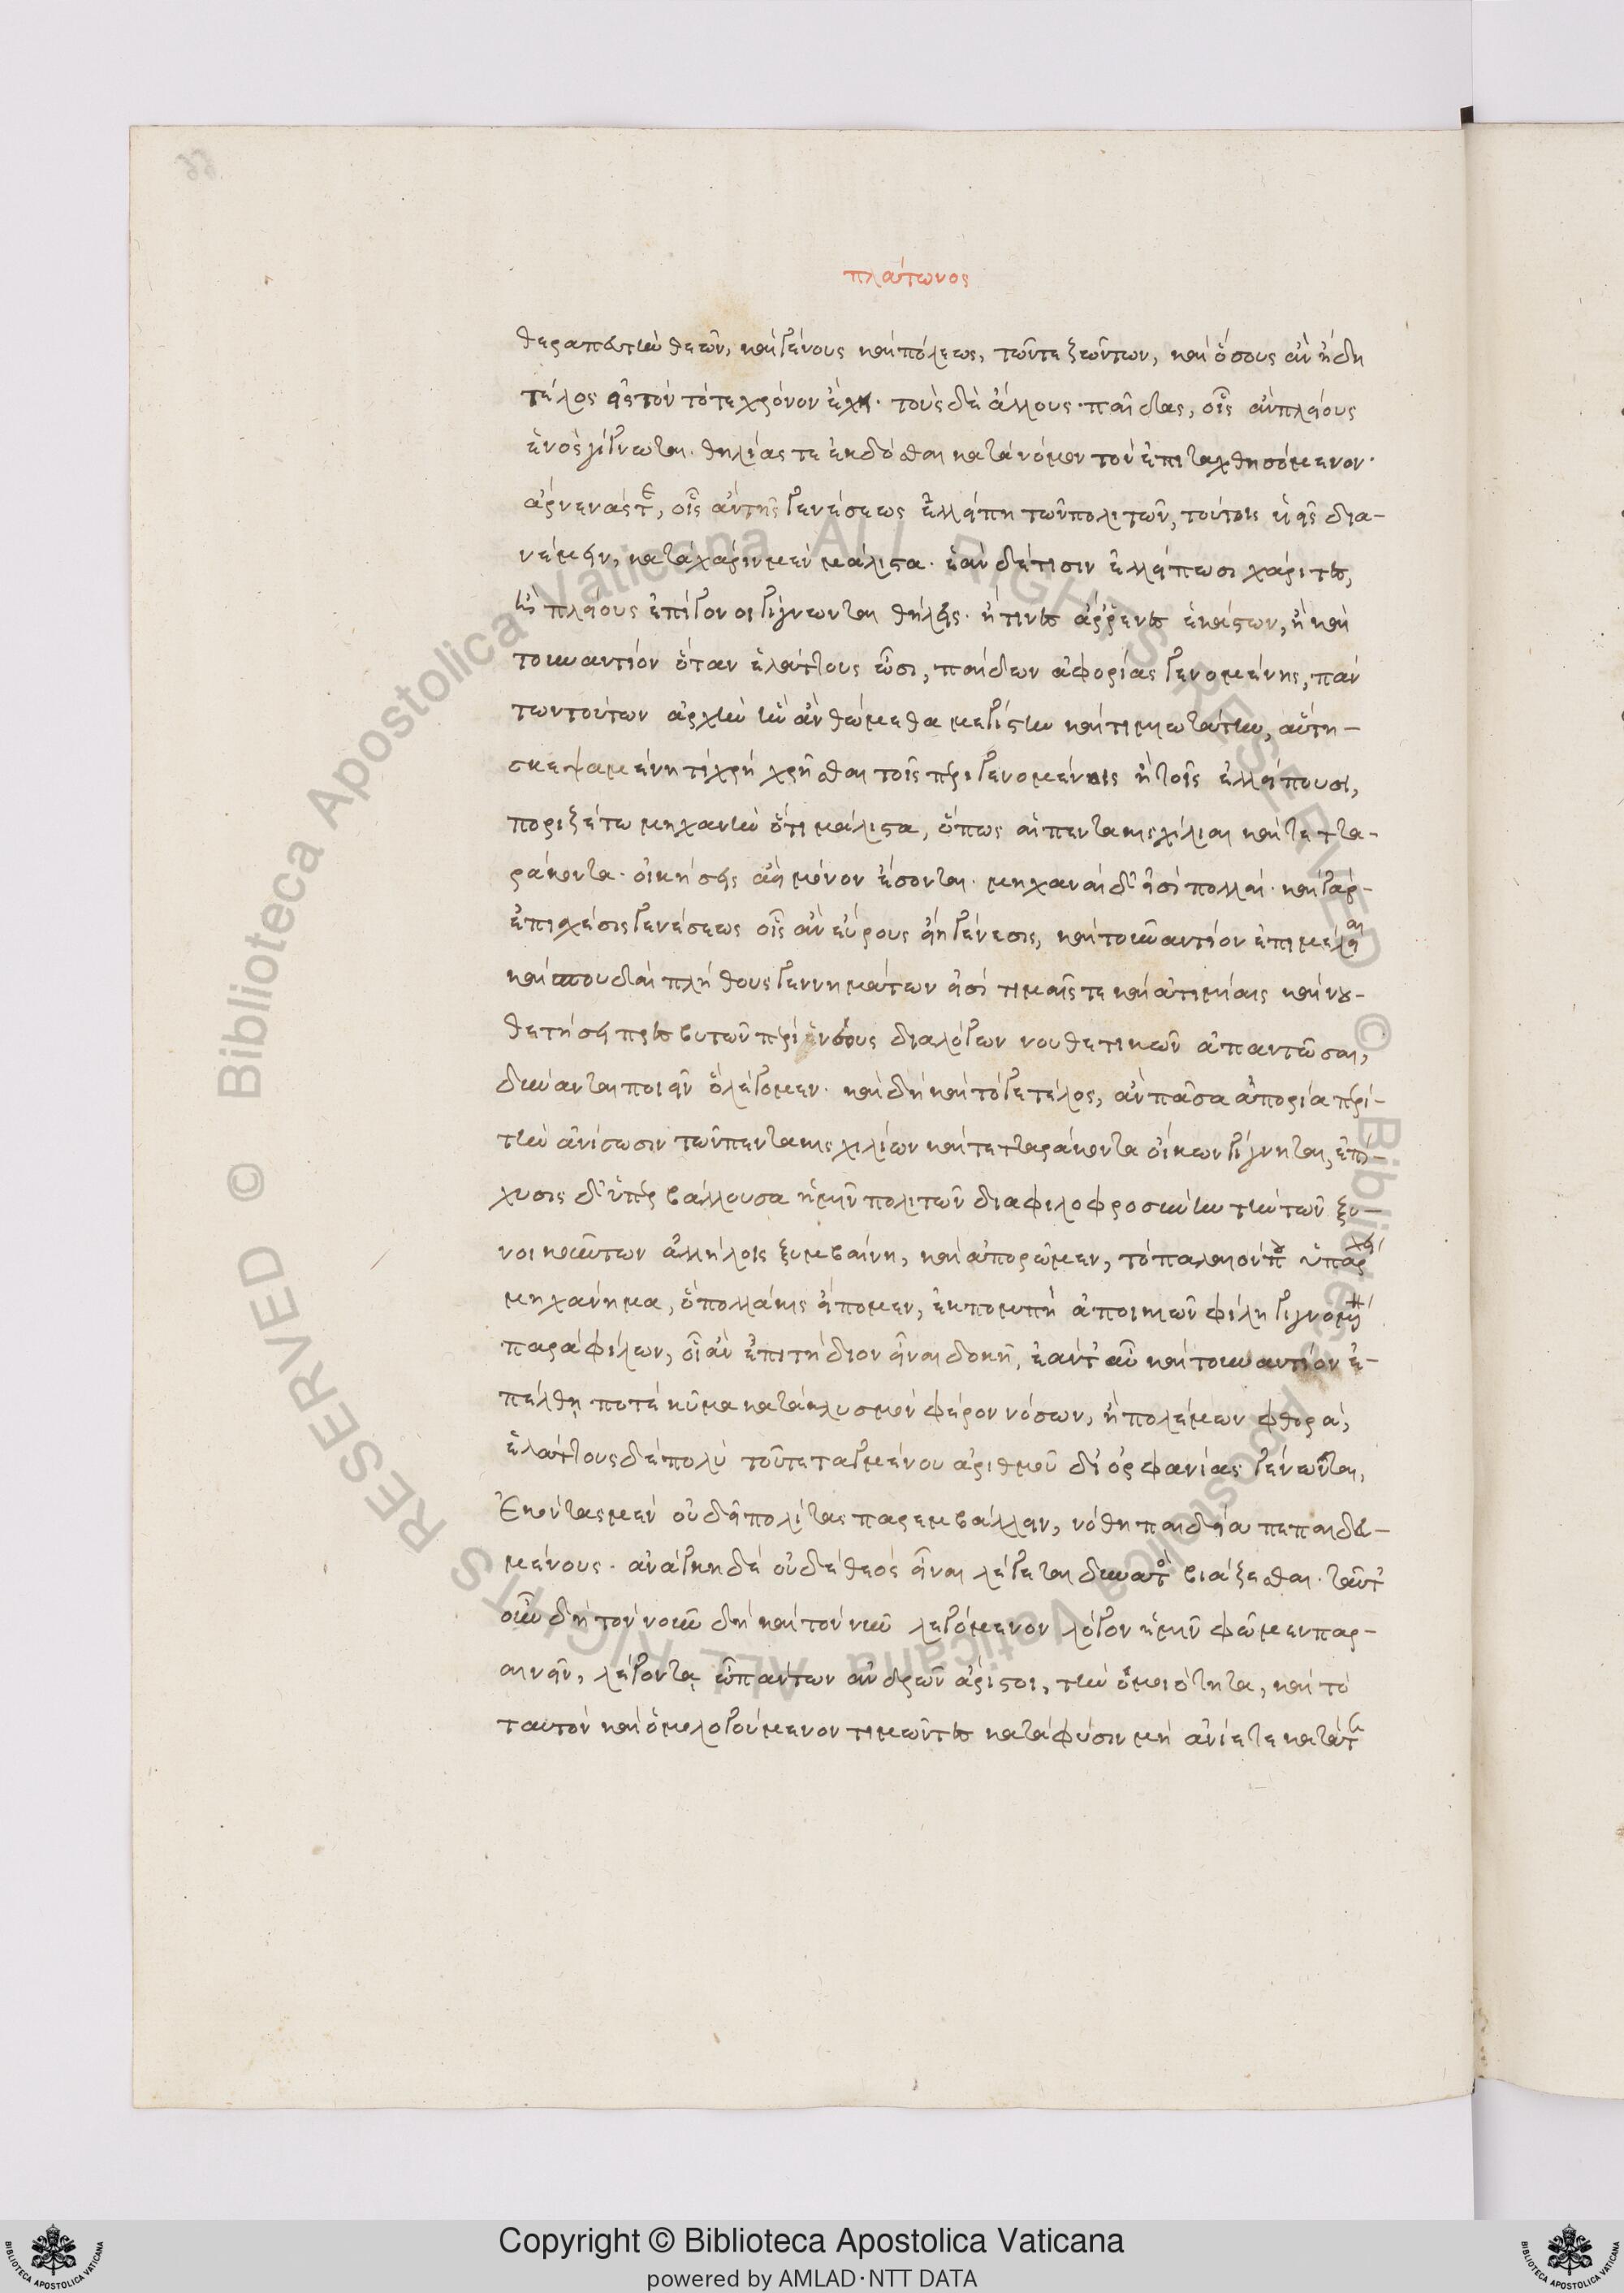 πλάτωνος
θεραπευτὴν θεῶν, καὶ γένους καὶ πόλεως, τῶν τε ζώντων, καὶ ὅσους ἂν ἤδη
τέλος εἰς τὸν τότε χρόνον ἔχη· τοὺς δὲ ἄλλους παῖδας, οἷς ἂν πλείους
ἑνὸς γίγνωται· θηλείας τε ἐκδόσθαι κατὰ νόμον τὸν ἐπιταχθησόμενον·
ἄρρενας τε, οἷς ἂν τῆς γενέσεως ἐλλείπη τῶν πολιτῶν, τούτοις υἱεῖς δια-
νέμειν, κατὰ χάριν μὲν μάλιστα· ἐὰν δέ τισιν ἐλλείπωσι χάριτες,
ἢ πλείους ἐπίγονοι γίγνωνται θήλεις· ἤ τινες ἄρρενες ἑκάστων, ἢ καὶ
τοὐναντίον ὅταν ἐλάττους ὦσι, παίδων ἀφορίας γενομένης, πάν
των τούτων ἀρχὴν ἣν ἂν θώμεθα μεγίστην καὶ τιμιωτάτην, αὕτη-
σκεψαμένη τί χρὴ χρῆσθαι τοῖς περιγενομένοις ἢ τοῖς ἐλλείπουσι,
ποριζέτω μηχανὴν ὅτι μάλιστα, ὅπως αἱ πεντακισχίλιαι καὶ τεττα-
ράκοντα οἰκήσεις ἀεὶ μόνον ἔσονται· μηχαναὶ δ' εἰσὶ πολλαί· καὶ γὰρ-
ἐπισχέσις γενέσεως οἷς ἂν εὔρους εἴη γένεσις, καὶ τοὐναντίον ἐπιμέλειαι
καὶ σπουδαὶ πλήθους γεννημάτων εἰσί τιμαῖς τε καὶ ἀτιμίαις καὶ νου-
θετήσει πρεσβυτῶν περὶ νέους διαλόγων νουθετικῶν ἀπαντῶσαι,
δύνανται ποιεῖν ὃ λέγομεν· καὶ δὴ καὶ τό γε τέλος, ἂν πᾶσα ἀπορία περὶ-
τὴν ἀνίσωσιν τῶν πεντακισχιλίων καὶ τετταράκοντα οἴκων γίγνηται, ἐπί-
χυσις δ' ὑπερβάλλουσα ἡμῖν πολιτῶν διὰ φιλοφροσύνην τὴν τῶν ξυ-
νοικούντων ἀλλήλοις ξυμβαίνη, καὶ ἀπορῶμεν, τὸ παλαιόν που ὑπάρχει
μηχάνημα, ὃ πολλάκις εἴπομεν, ἐκπομπὴ ἀποικιῶν φίλη γιγνομένη
παρὰ φίλων, οἳ ἂν ἐπιτήδιον εἶναι δοκῆ, ἐάν τ' αὖ καὶ τοὐναντίον ἐ-
πέλθη ποτὲ κῦμα κατακλυσμὸν φέρον νόσων, ἢ πολέμων φθορά,
ἐλάττους δὲ πολὺ τοῦ τεταγμένου ἀριθμοῦ δι' ὀρφανίας γένωνται,
Ἑκόντας μὲν οὐ δεῖ πολίτας παρεμβάλλειν, νόθη παιδεία πεπαιδευ-
μένους· ἀνάγκη δὲ οὐδὲ θεὸς εἶναι λέγεται δυνατὸς βιάζεσθαι· ταῦτ'
οὖν δὴ τὸν νοῦν δὴ καὶ τὸν νῦν λεγόμενον λόγον ἡμῖν φῶμεν παρ-
αινεῖν, λέγοντα, ὦ πάντων ἀνδρῶν ἄριστοι, τὴν ὁμοιότητα, καὶ τὸ
ταυτὸν καὶ ὁμολογούμενον τιμῶντες κατὰ φύσιν μὴ ἀνίετε κατά τε